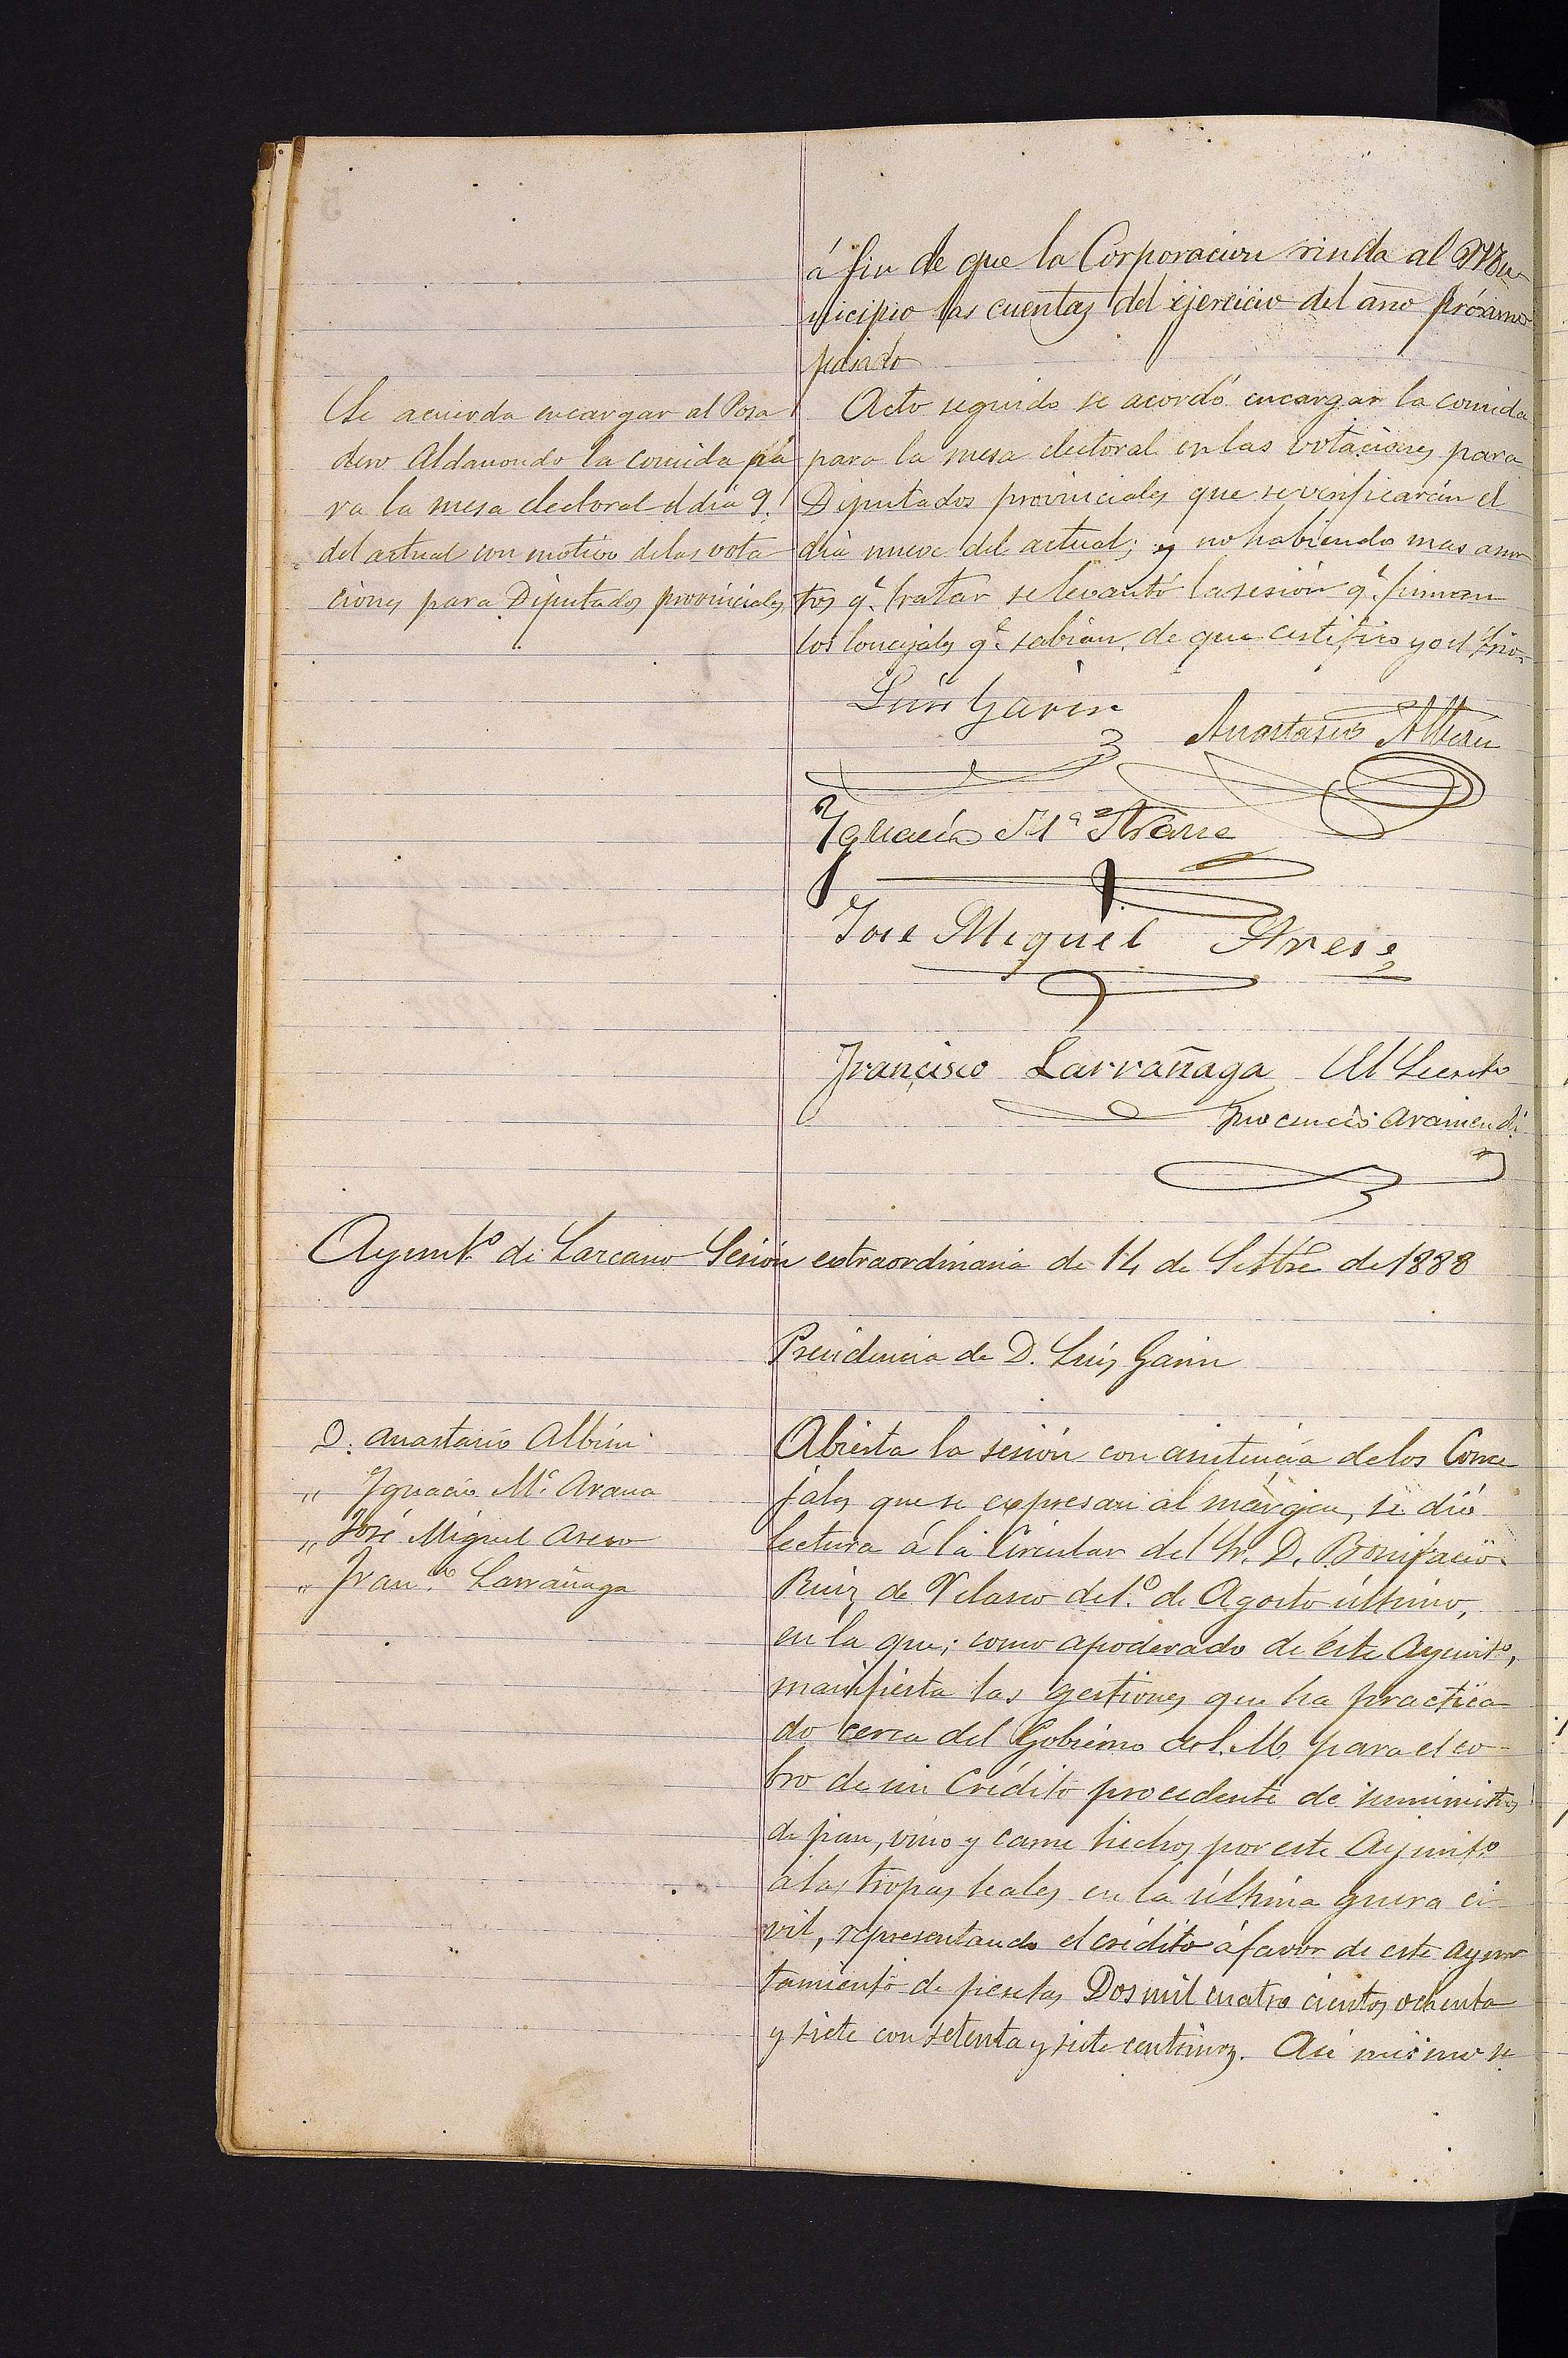 á fin de que la Corporacion rinda al Mu-
nicipio las cuentas del ejercicio del año próximo
pasado
Se acuerda encargar al Posa
dero Aldamondo la comida pa
ra la mesa electoral el dia 9.
del actual con motivo de las vota
ciones para Diputados provinciales
Acto seguido se acordó encargar la comida
para la mesa electoral en las votaciones para
Diputados provinciales que se verificarán el
dia nueve del actual; y no habiendo mas asun
tos q.e tratar se levantó la sesión q.e firmaron
los Concejales q.e sabian, de que certifico yo el Srio.
Luis Garin
Anastasio Albisu
Ygnacio Mª Arana
Jose Miguel Arese
Francisco Larrañaga El Secreto
Ynocencio Aramendi
Ayunt.o de Lazcano Sesión extraordinaria de 14 de Setbre de 1888
Presidencia de D. Luis Garin
D. Anastasio Albisu
" Ygnacio Mª Arana
" José Miguel
" Fran.co Larrañaga
Abierta la sesión con asistencia de los Conce
jales que se expresan al márgen, se dió
lectura á la Circular del Sr. D. Bonifacio
Ruiz de Velasco del 1.º de Agosto último,
en la que; como apoderado de éste Ayunto,
manifiesta las gestiones que ha practica
do cerca del Gobierno de S. M. para el co
bro de un Crédito procedente de suministros
de pan, vino y carne hechos por este Ayunto
a las tropas leales en la última guerra ci
vil, representando el crédito á favor de este Ayun
tamiento de pesetas Dos mil cuatro cientos ochenta
y siete con setenta y siete centimos. Asi mismo se